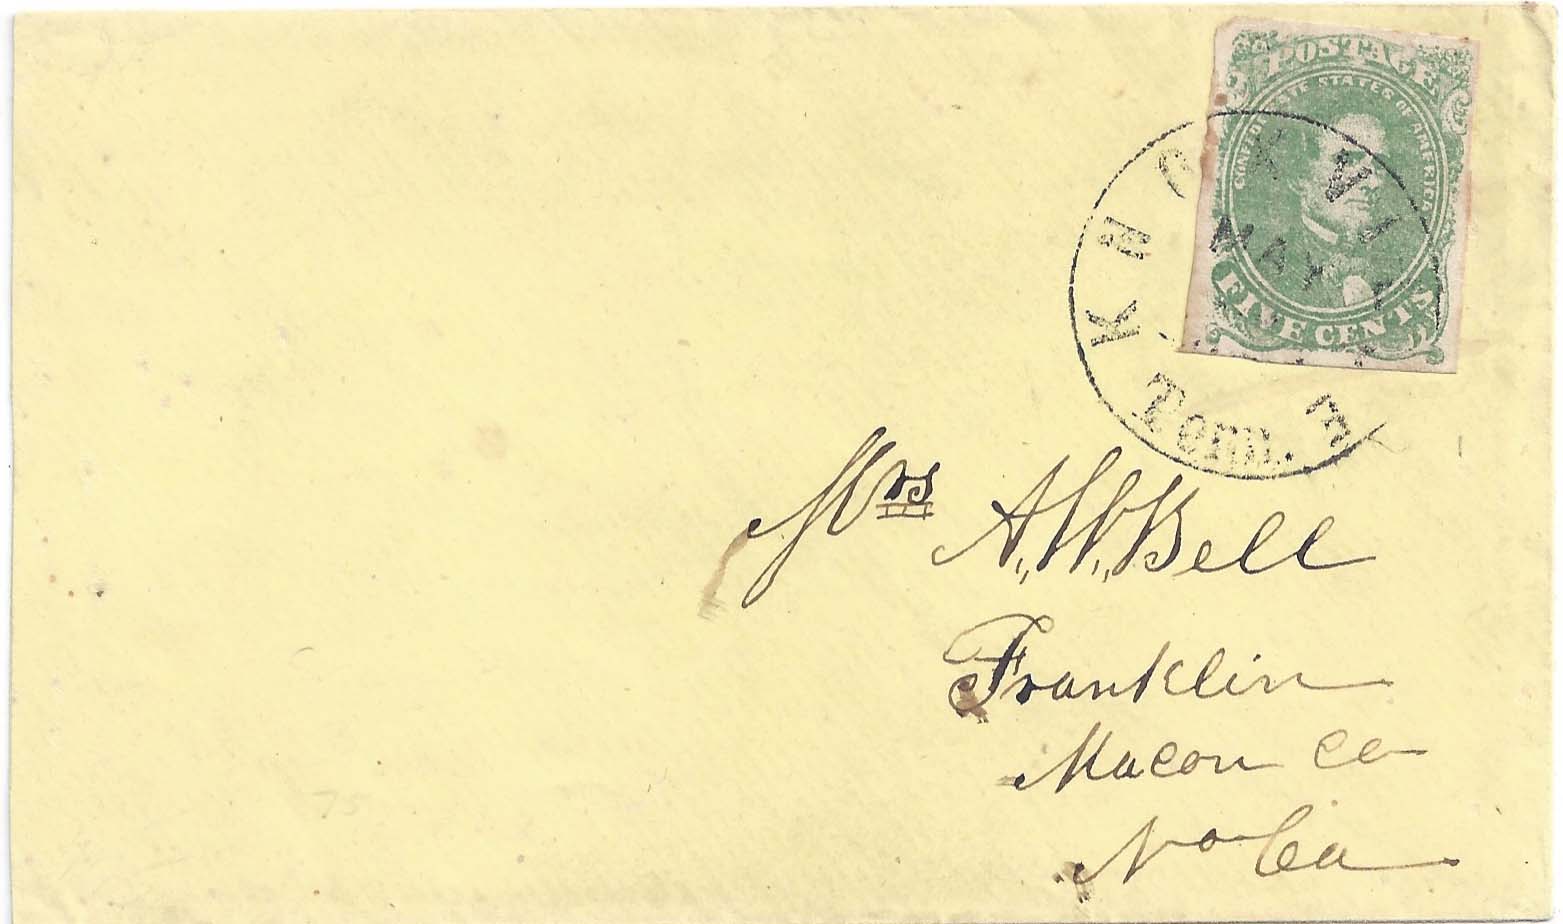 POSTAGE
CONFEDERATE STATES OF AMERICA
FIVE CENTS
KNOXVILLE
MAY
Tenn.
Mrs A. W. Bell
Franklin
Macon Co
No Ca
75